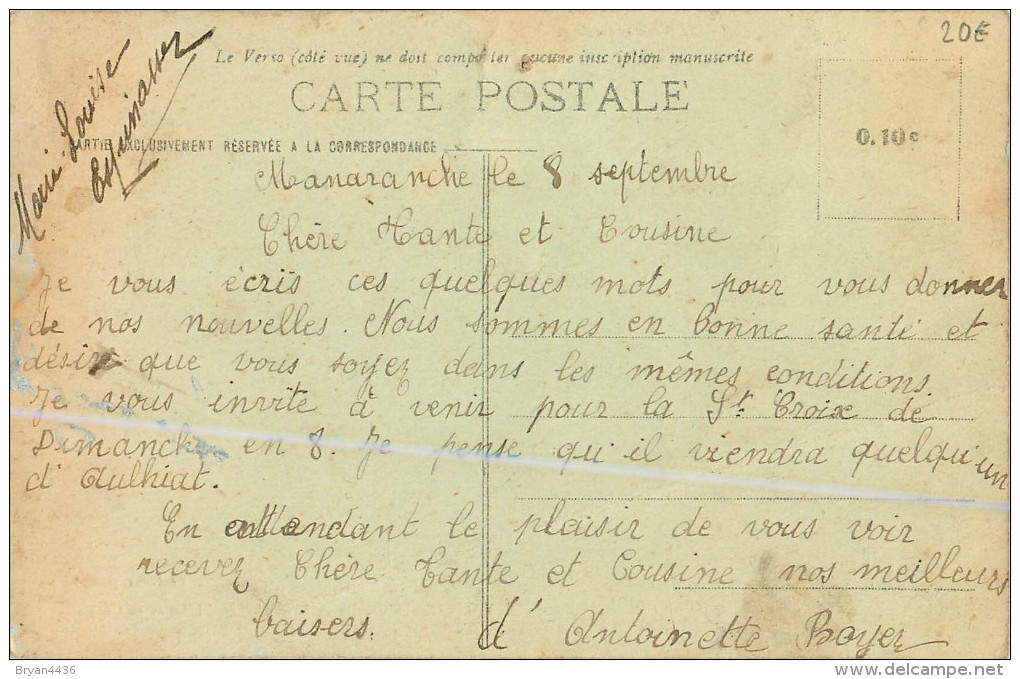 20€
Le Verso (côté vue) ne doit comporter aucune inscription manuscrite
CARTE POSTALE
0.10c
PARTIE EXCLUSIVEMENT RÉSERVÉE A LA CORRESPONDANCE
Marie-Louise
Manaranche le 8 septembre
Chère Tante et Cousine
Je vous écris ces quelques mots pour vous donner
de nos nouvelles. Nous sommes en bonne santé et
désire que vous soyez dans les mêmes conditions.
Je vous invite à venir pour la St Croix de
Dimanche en 8. Je pense qu'il viendra quelqu'un
d'Aulhiat.
En attendant le plaisir de vous voir
recevez Chère Tante et Cousine nos meilleurs
baisers. d'Antoinette Boyer
Bryan4436
delcampe.net